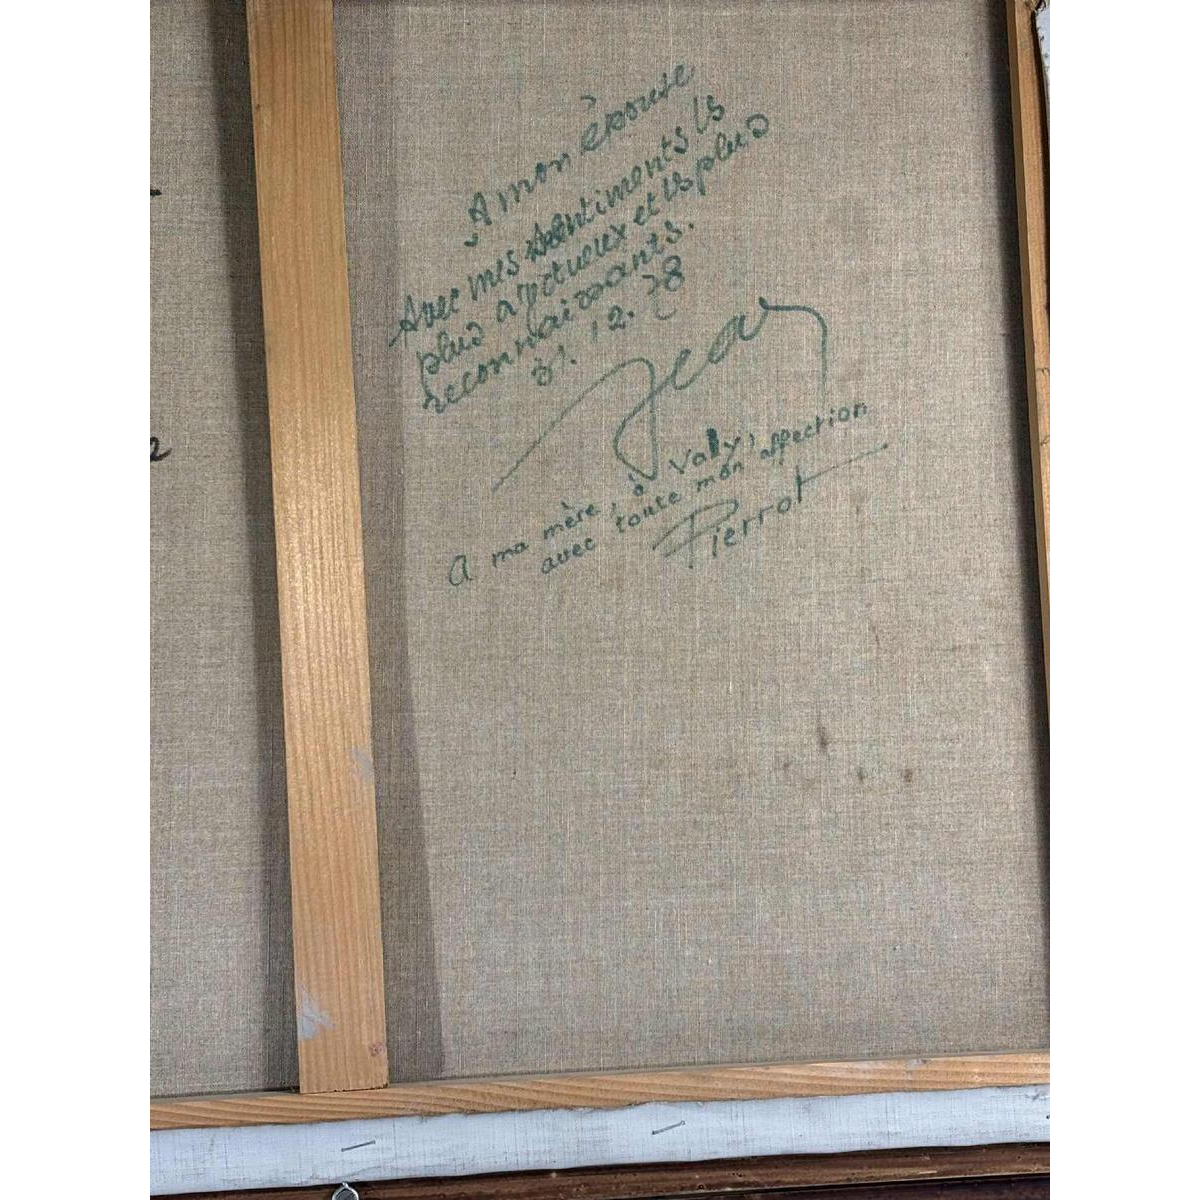 A mon épouse
Avec mes sentiments les
plus affectueux et les plus
reconnaissants.
31.12.78
Jean
A ma mère, à Vally,
avec toute mon affection
Pierrot
2